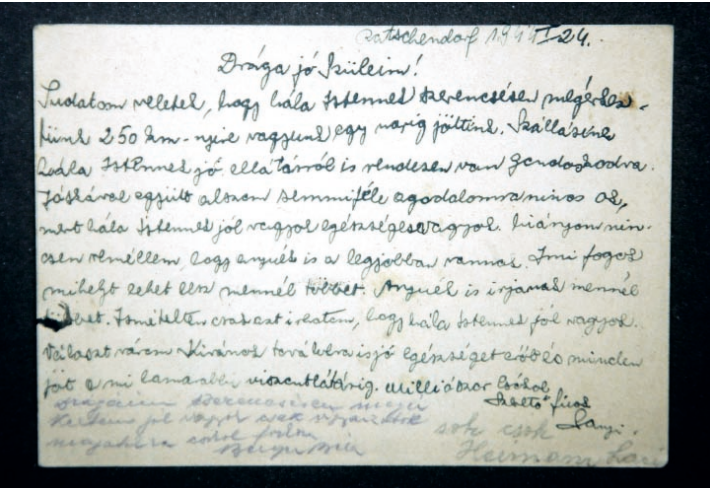 Patschendorf 1944 I 24.
Drága jó Szüleim!
Tudatom veletek, hogy hála Istennek szerencsésen megérkez-
tünk 250 km-nyire vagyunk egy napig jöttünk. Szállásunk
hála Istennek jó ellátásról is rendesen van gondoskodva.
együtt alszom semmiféle agodalomra nincs ok,
mert hála Istennek jól vagyok egészséges vagyok. hiányom nin-
csen remélem, hogy anyuék is a legjobban vannak. Irni fogok
mihelyt lehet lesz mennél többet. Anyuék is irjanak mennél
többet. Ismételten csak azt irhatom, hogy hála Istennek jól vagyok.
Választ várom Kivánok továbbra is jó egészséget erőt és minden
jót a mi viszontlátásig. milliószor Csókol
Szerető fiuk
szerencsésen
jól vagyok
sok csok
csokol
Hermann Laci